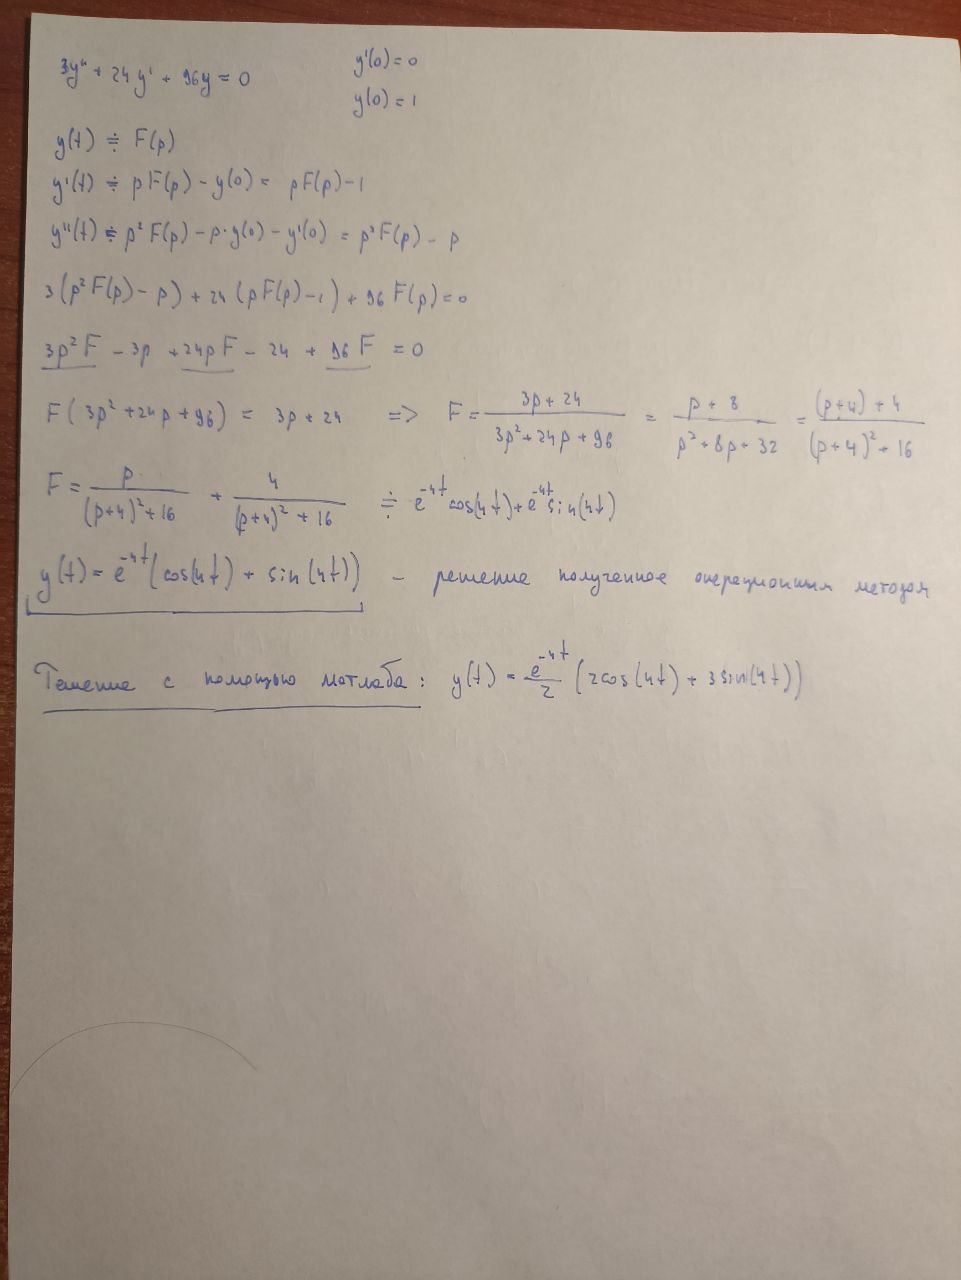 3y'' + 24y' + 96y = 0    y'(0) = 0
y(0) = 1
y(t) ≑ F(p)
y'(t) ≑ pF(p) - y(0) = pF(p) - 1
y''(t) ≑ p² F(p) - p·y(0) - y'(0) = p² F(p) - p
3(p² F(p) - p) + 24(pF(p) - 1) + 96 F(p) = 0
3p² F - 3p + 24pF - 24 + 96 F = 0
F(3p² + 24p + 96) = 3p + 24 => F = (3p + 24)/(3p² + 24p + 96) = (p + 8)/(p² + 8p + 32) = ((p+4) + 4)/((p+4)² + 16)
F = p/((p+4)² + 16) + 4/((p+4)² + 16) ≑ e^(-4t) cos(4t) + e^(-4t) sin(4t)
y(t) = e^(-4t) (cos(4t) + sin(4t)) - решение полученное операционным методом
Решение с помощью матлаба: y(t) = e^(-4t)/2 (2cos(4t) + 3sin(4t))